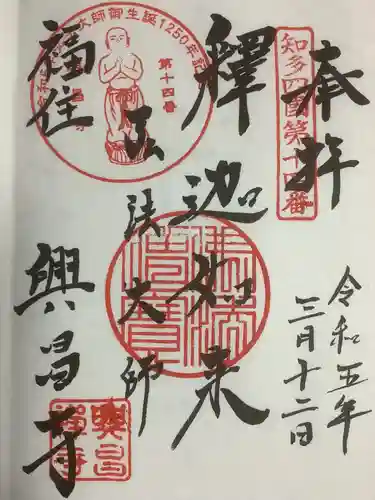 奉拝
知多四国第十四番
令和五年
三月十二日
釋迦如来
弘法大師
大師御生誕1250年記
第十四番
福住
興昌寺
佛法僧寶
興昌禅寺